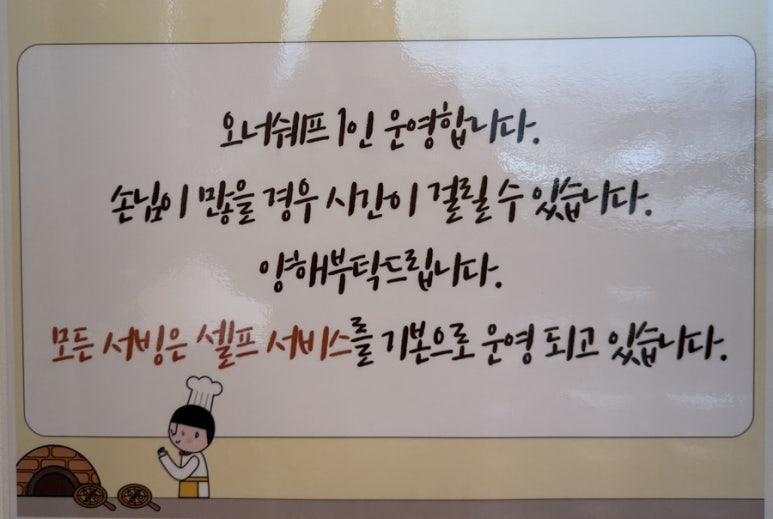 오너쉐프 1인 운영합니다.
손님이 많을 경우 시간이 걸릴 수 있습니다.
양해부탁드립니다.
모든 서빙은 셀프 서비스를 기본으로 운영 되고 있습니다.